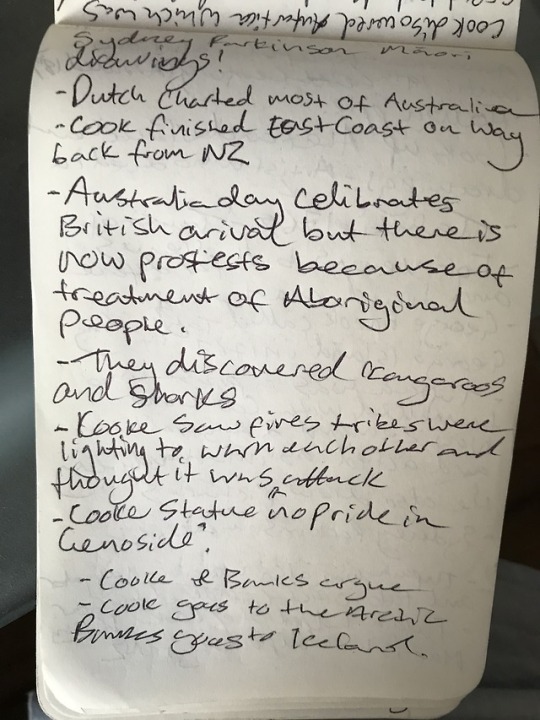 Cook disovered Antartica which was
Sydney Parkinson Maori
drawings!
- Dutch Charted most of Australia
- Cook finished East Coast on way
back from NZ
- Australia day Celibrates
British arival but there is
now protests because of
treatment of Aboriginal
People.
- They discovered Kangaroos
and Sharks
- Cooke saw fires tribes were
lighting to warn each other and
thought it was attack
- Cooke Statue "no pride in
Genoside".
- Cooke & Banks argue
- Cook goes to the Arctic
Banks goes to Iceland.